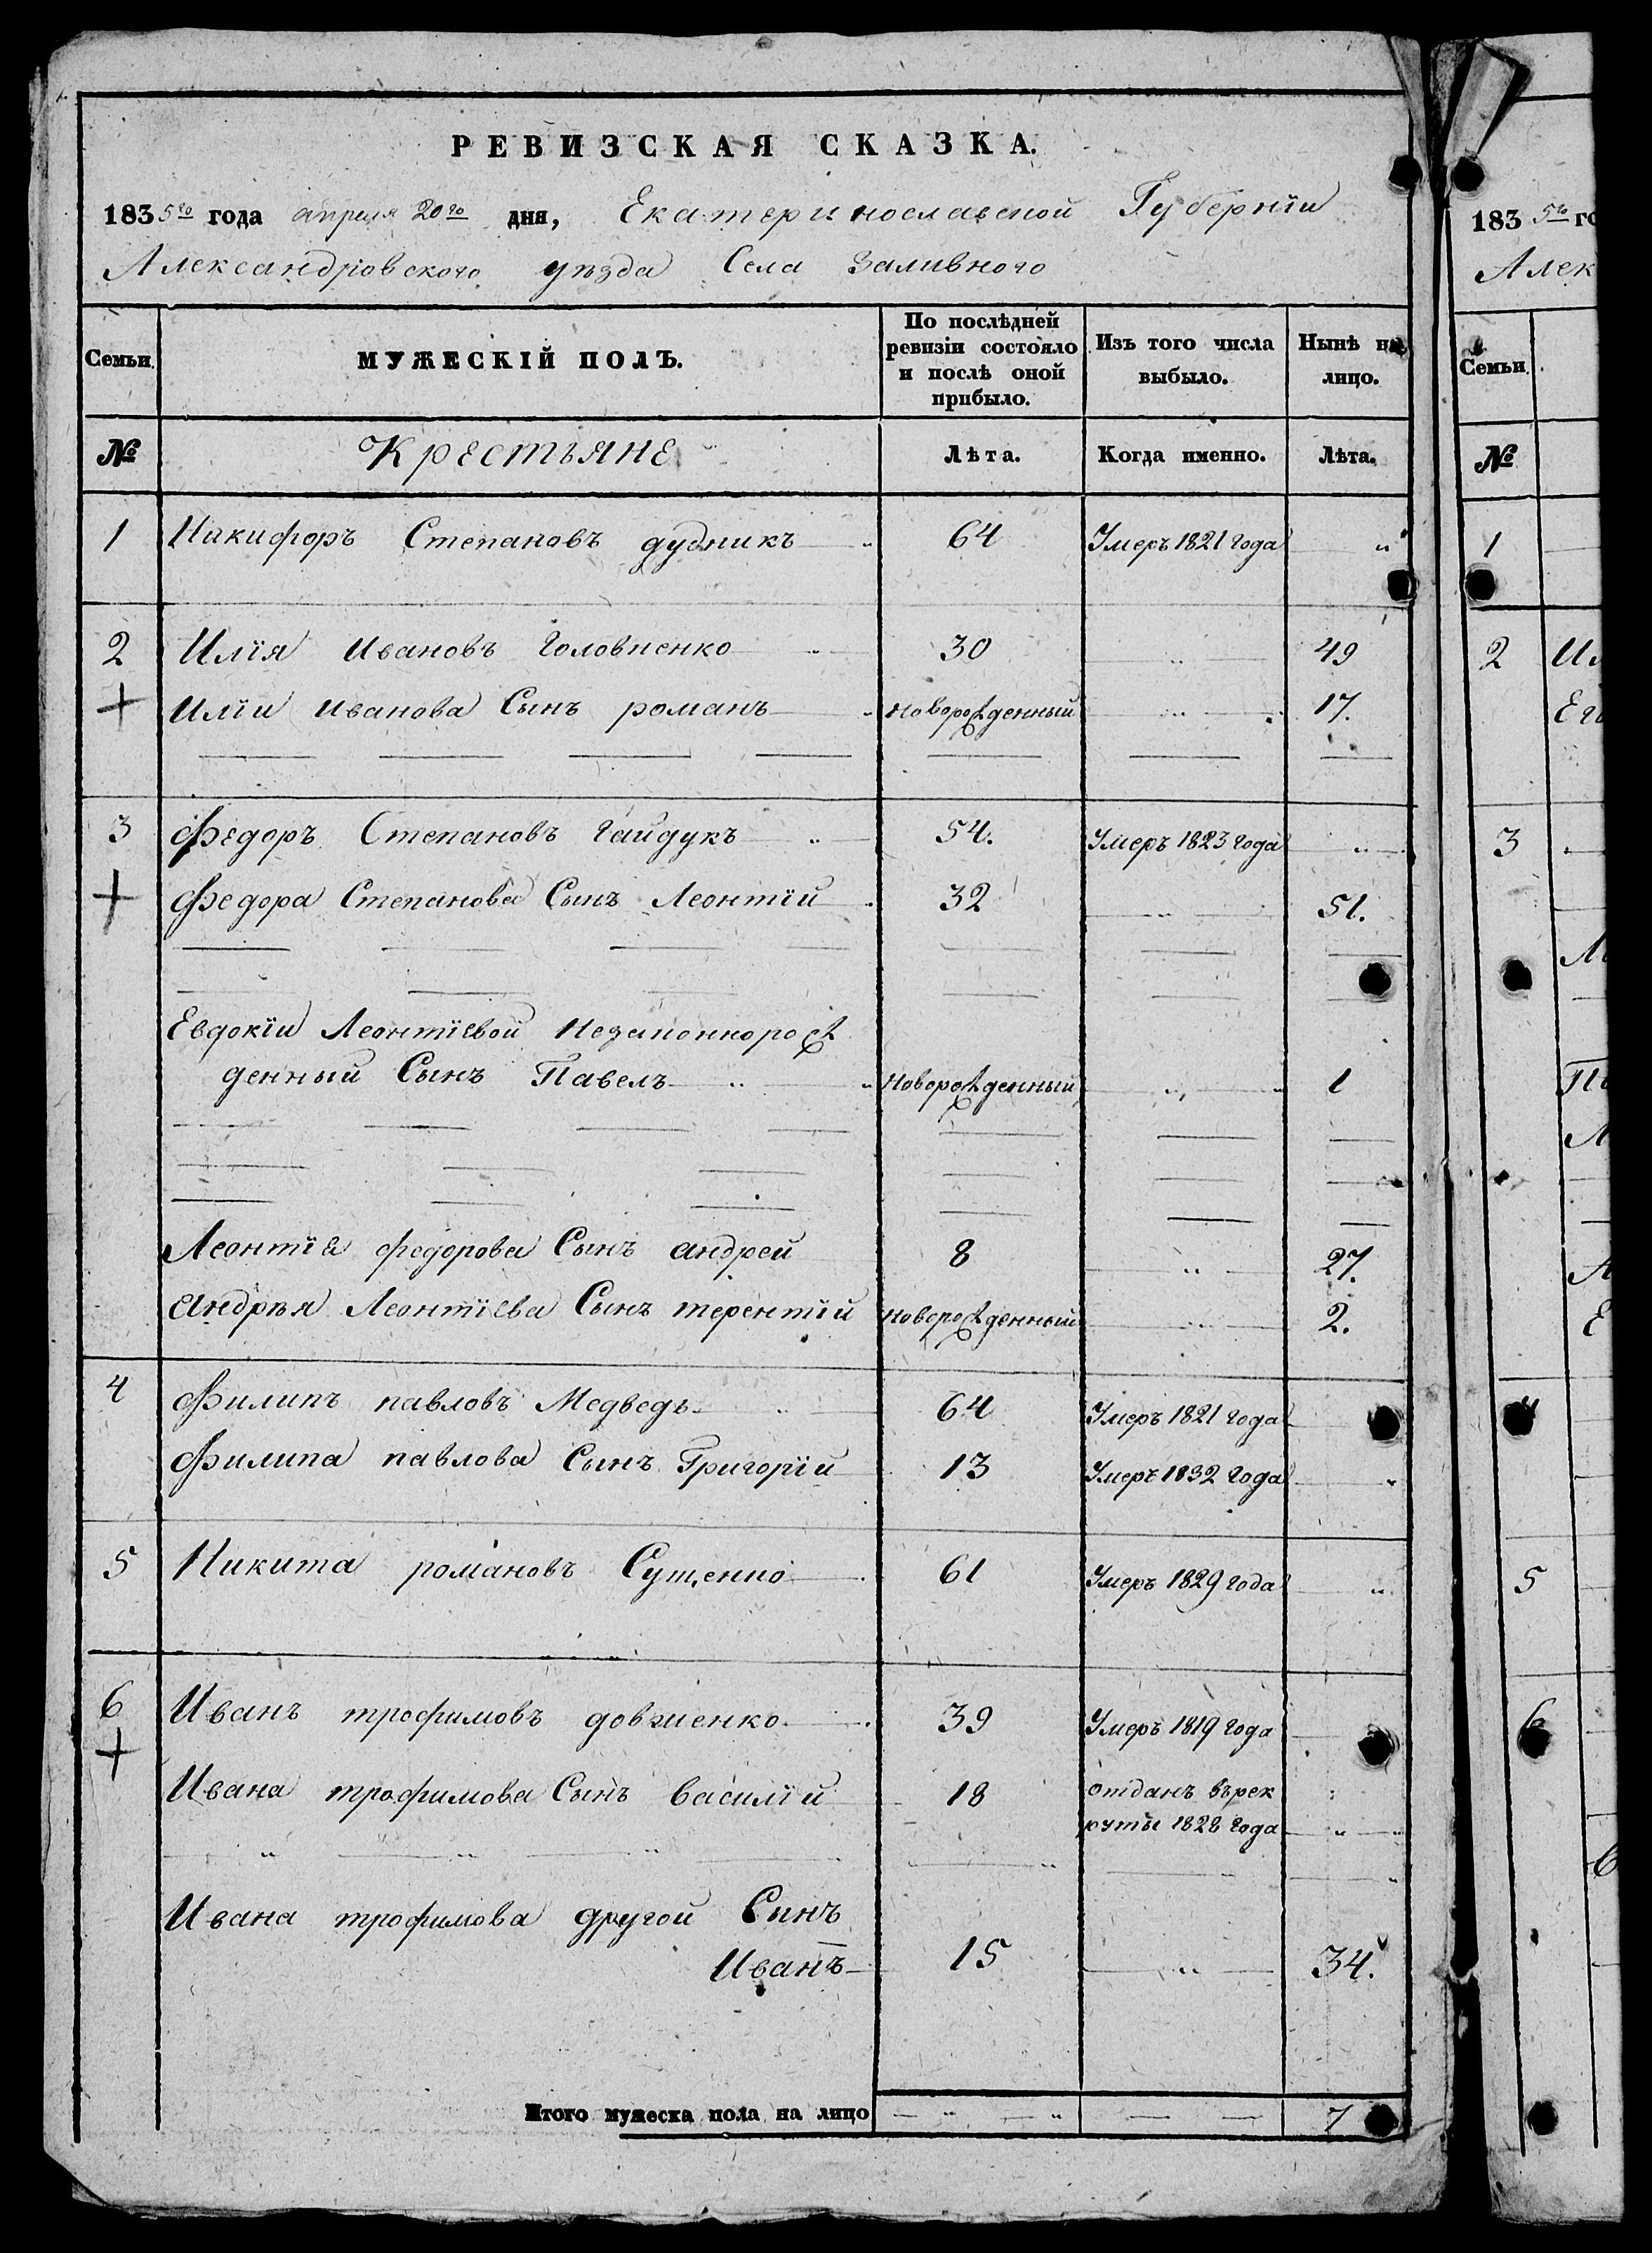 РЕВИЗСКАЯ СКАЗКА.
1835го года апреля 20го дня, Екатеринославской Губернїи
Александровского уѣзда Села Заливного
Семьи. МУЖЕСКІЙ ПОЛЪ. По послѣдней ревизіи состояло и послѣ оной прибыло. Изъ того числа выбыло. Нынѣ на лицо.
№ Крестьяне Лѣта. Когда именно. Лѣта.
1 Никифоръ Степановъ дудникъ 64 Умеръ 1821 года
2 Илїя Ивановъ Головненко 30 49
Илїи Иванова Сынъ романъ новорожденный 17.
3 Федоръ Степановъ Гайдукъ 54. Умеръ 1823 года
Федора Степанова Сынъ Леонтїй 32 51.
Евдокїи Леонтїевой Незаконнорож
денный Сынъ Павелъ Новорожденный 1
Леонтїя федорова Сынъ андрей 8 27.
андрея Леонтїева Сынъ терентїй новорожденный 2.
4 Филипъ павловъ Медведь 64 Умеръ 1821 года
Филипа павлова Сынъ Григорїй 13 Умеръ 1832 года
5 Никита романовъ Сущенко 61 Умеръ 1829 года
6 Иванъ трофимовъ довженко 39 Умеръ 1819 года
Ивана трофимова Сынъ василїй 18 отданъ върек
руты 1828 года
Ивана трофимова другой Сынъ
Иванъ 15 34.
Итого мужеска пола на лицо 7
183 5го го
Алек
Семьи.
№
1
2 Ил
Его
3
5
6